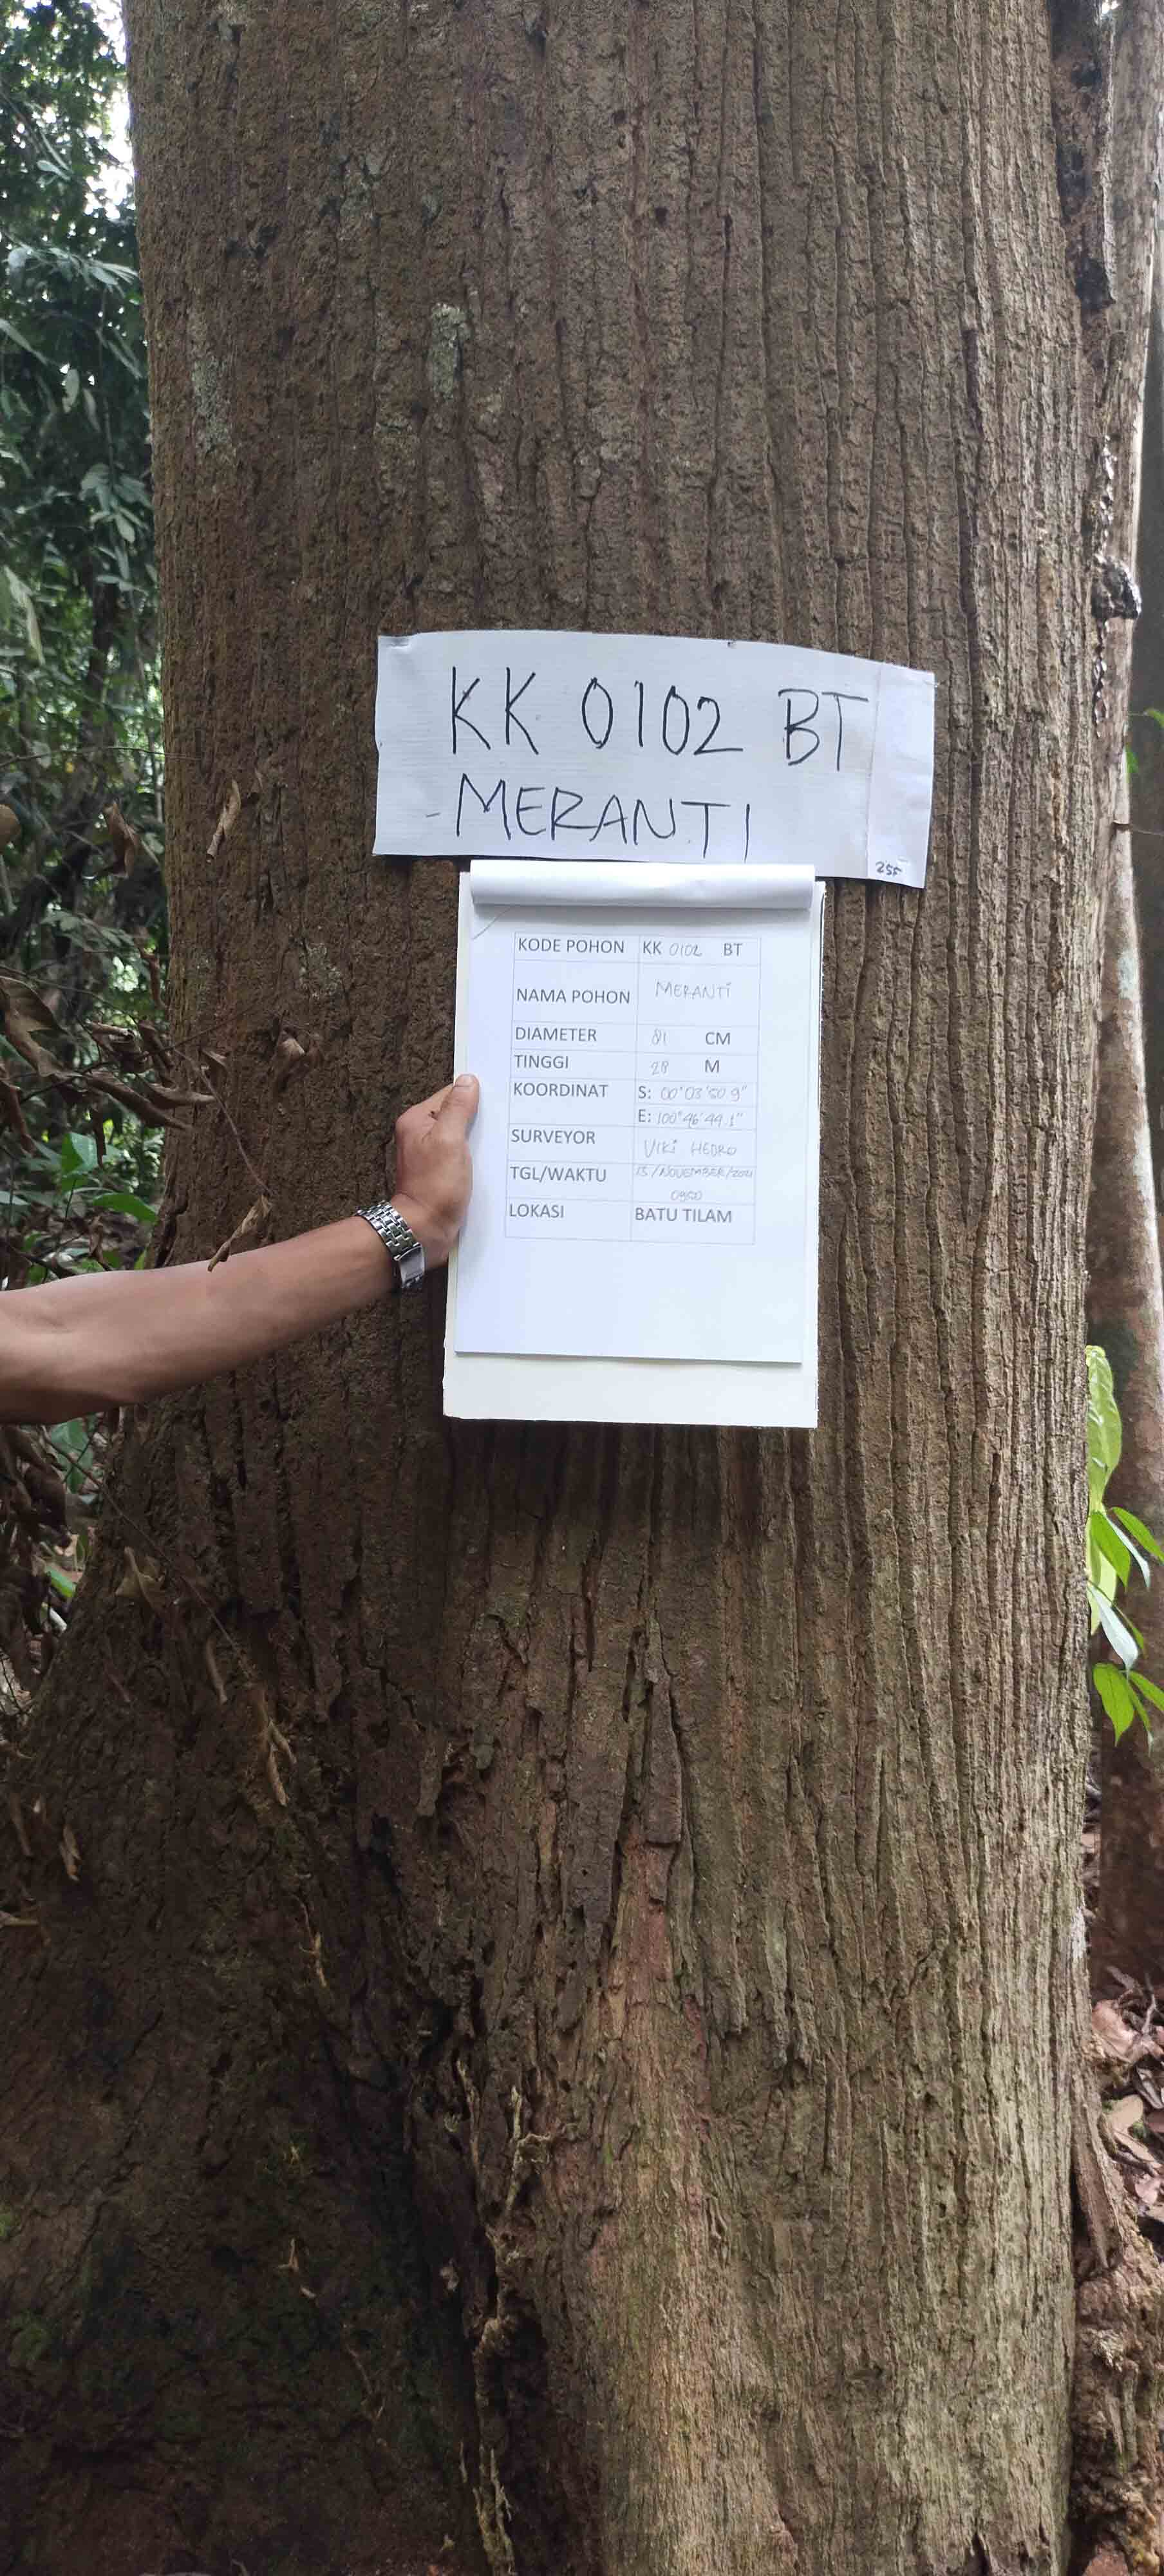 KK 0102 BT
- MERANTI
255
KODE POHON KK 0102 BT
NAMA POHON MERANTI
DIAMETER 81 CM
TINGGI 28 M
KOORDINAT S: 00°03'50.9"
E: 100°46'44.1"
SURVEYOR VIKI HEDRO
TGL/WAKTU 13/NOVEMBER/2021
0950
LOKASI BATU TILAM